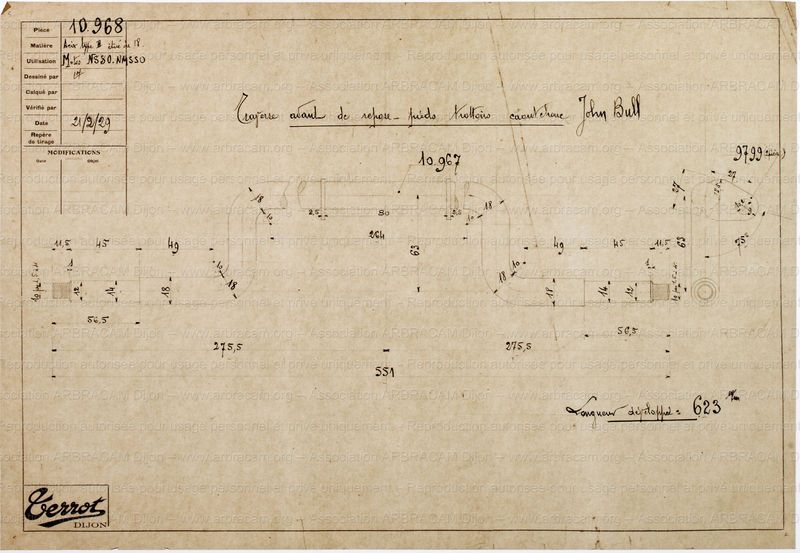 Pièce 10.968
Matière Acier type B étiré de 18
Utilisation Motos NSSO. NMSSO
Dessiné par
Calqué par
Vérifié par
Date 21/2/29
Repère
de tirage
MODIFICATIONS
Date Objet
Traverse avant de repose-pieds trottoirs caoutchouc John Bull
10.967
9799
18
10
2,5
50
2,5
10
18
264
63
27
63
11,5 45 49
10
18
12 14 18
56,5
49 45 11,5
10
18
18 14 12
56,5
275,5
275,5
551
Longueur développée = 623 m/m
Terrot
DIJON
www.arbracam.org – Association ARBRACAM Dijon – Reproduction autorisée pour usage personnel et privé uniquement